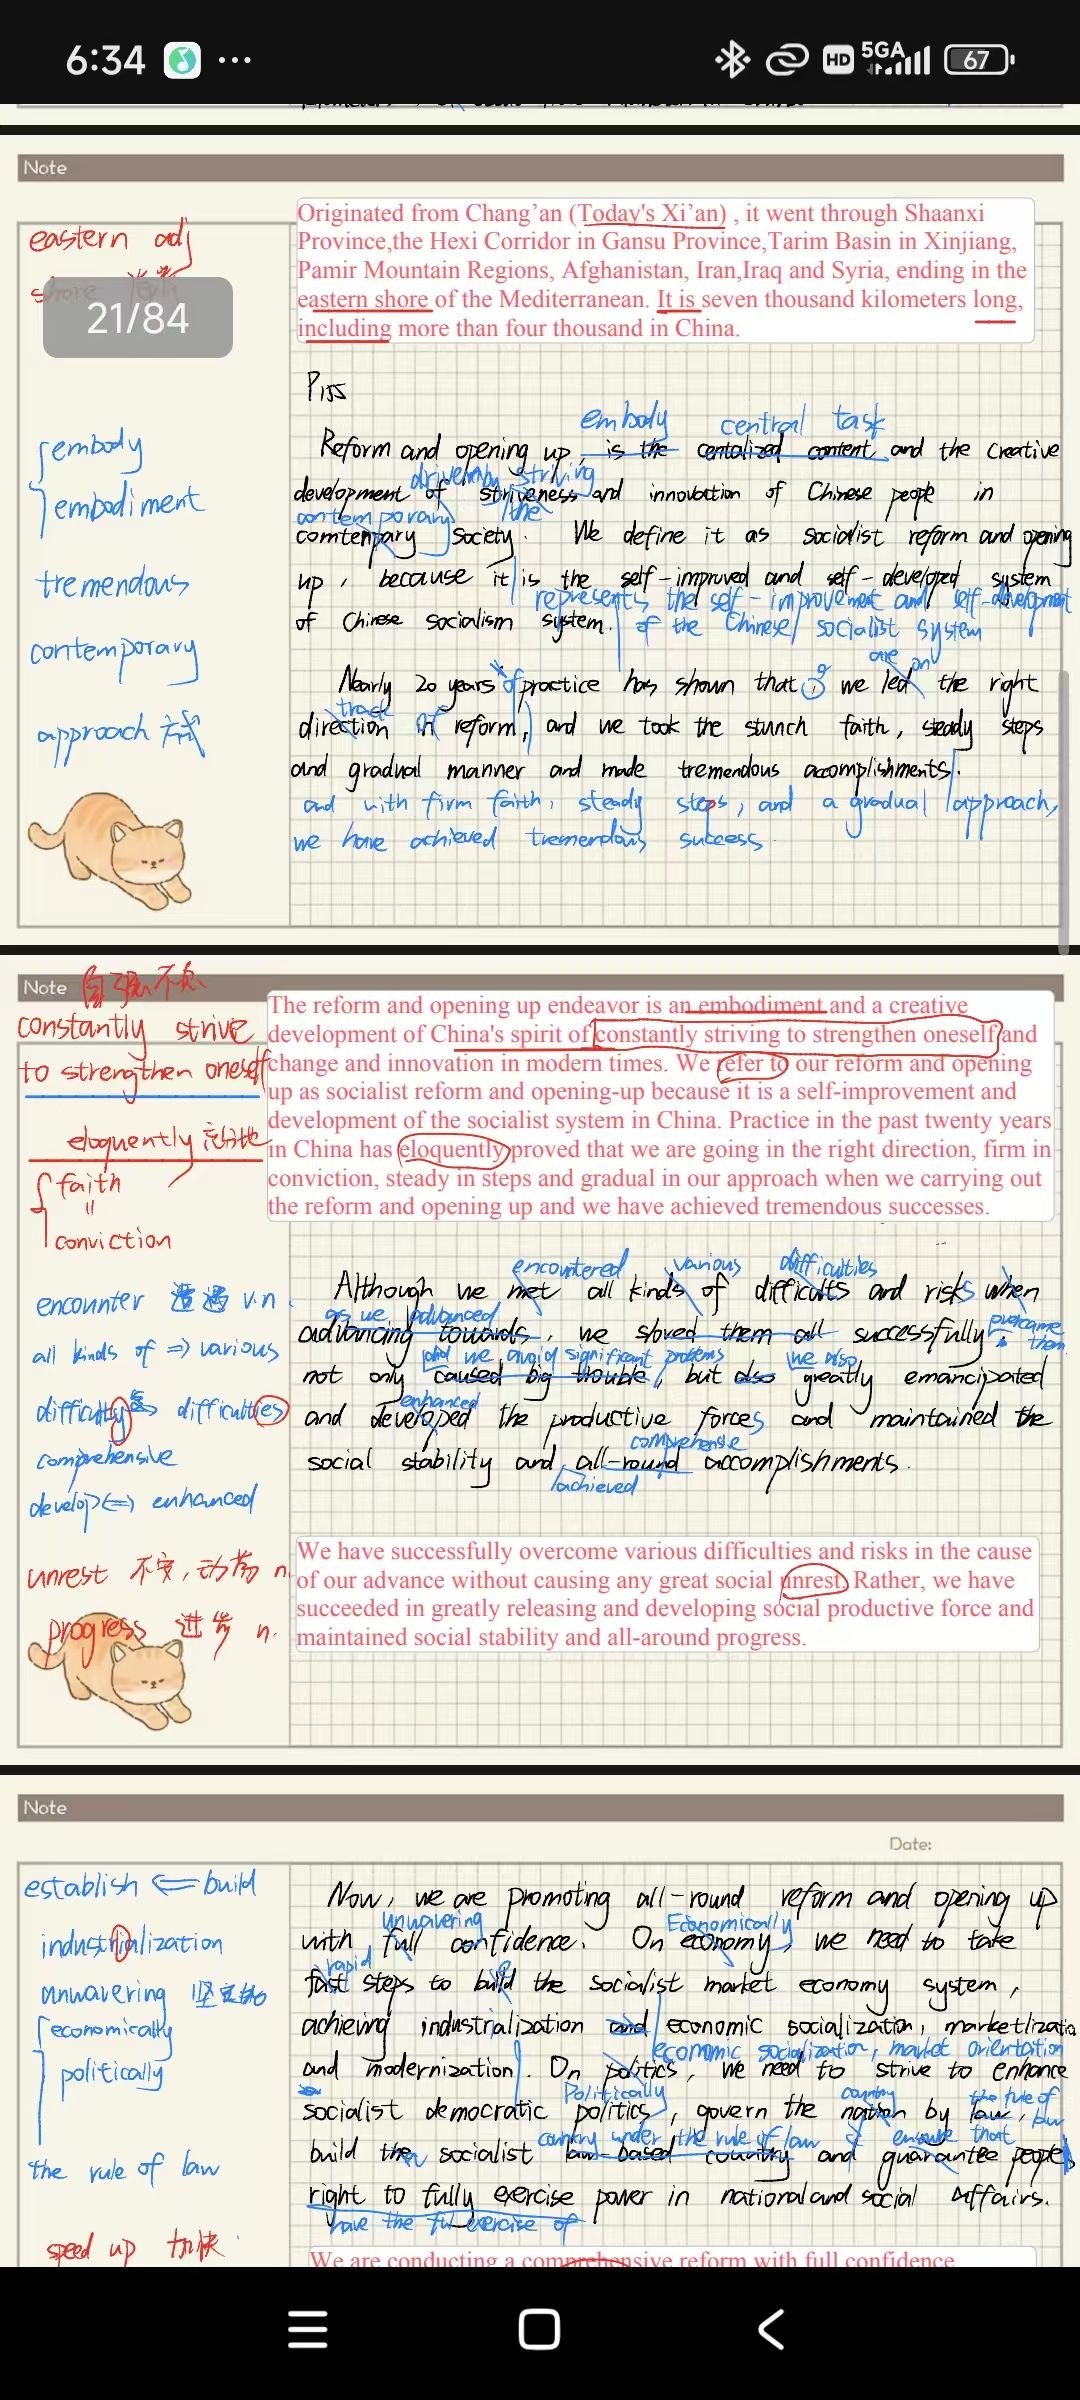 6:34
HD 5GA 67
Note
Originated from Chang'an (Today's Xi'an) , it went through Shaanxi
Province,the Hexi Corridor in Gansu Province,Tarim Basin in Xinjiang,
Pamir Mountain Regions, Afghanistan, Iran,Iraq and Syria, ending in the
eastern shore of the Mediterranean. It is seven thousand kilometers long,
including more than four thousand in China.
eastern adj
21/84
P155
embody central task
Reform and opening up, is the centalized content and the creative
driven by striving
development of striveness and innovation of Chinese people in
contemporary the
comtenpary society. We define it as socialist reform and opening
up, because it is the self-improved and self-developed system
represents the self-improvement and self-development
of Chinese socialism system.
of the Chinese socialist system
embody
embodiment
tremendous
contemporary
approach
are on
Nearly 20 years of practice has shown that we led the right
track of
direction of reform, and we took the stunch faith, steady steps
and gradual manner and made tremendous accomplishments.
and with firm faith, steady steps, and a gradual approach,
we have achieved tremendous success
Note
自强不息
constantly strive
to strengthen oneself
eloquently
faith
conviction
The reform and opening up endeavor is an embodiment and a creative
development of China's spirit of constantly striving to strengthen oneself and
change and innovation in modern times. We refer to our reform and opening
up as socialist reform and opening-up because it is a self-improvement and
development of the socialist system in China. Practice in the past twenty years
in China has eloquently proved that we are going in the right direction, firm in
conviction, steady in steps and gradual in our approach when we carrying out
the reform and opening up and we have achieved tremendous successes.
encountered various difficulties
Although we met all kinds of difficults and risks when
as we advanced overcame
advancing towards, we sloved them all successfully. them
and we avoid significant problems we also
not only caused big trouble, but also greatly emancipated
enhanced
and developed the productive forces and maintained the
comprehensive
social stability and all-round accomplishments.
achieved
encounter 遭遇 v.n.
all kinds of => various
difficulty difficulties
comprehensive
develop <=> enhanced
unrest 不安,动荡 n.
progress 进步 n.
We have successfully overcome various difficulties and risks in the cause
of our advance without causing any great social unrest. Rather, we have
succeeded in greatly releasing and developing social productive force and
maintained social stability and all-around progress.
Note
Date:
establish <= build
industrialization
unwavering 坚定的
economically
politically
the rule of law
speed up 加快
Now, we are promoting all-round reform and opening up
unwavering Economically
with full confidence. On economy, we need to take
rapid
fast steps to build the socialist market economy system,
achieving industrialization and economic socialization, marketlizatio
economic socialization, market orientation
and modernization. On politics, we need to strive to enhance
Politically country the rule of
socialist democratic politics, govern the nation by law, law
country under the rule of law ensure that
build the socialist law-based country and guarantee people
right to fully exercise power in national and social affairs.
have the full exercise of
We are conducting a comprehensive reform with full confidence